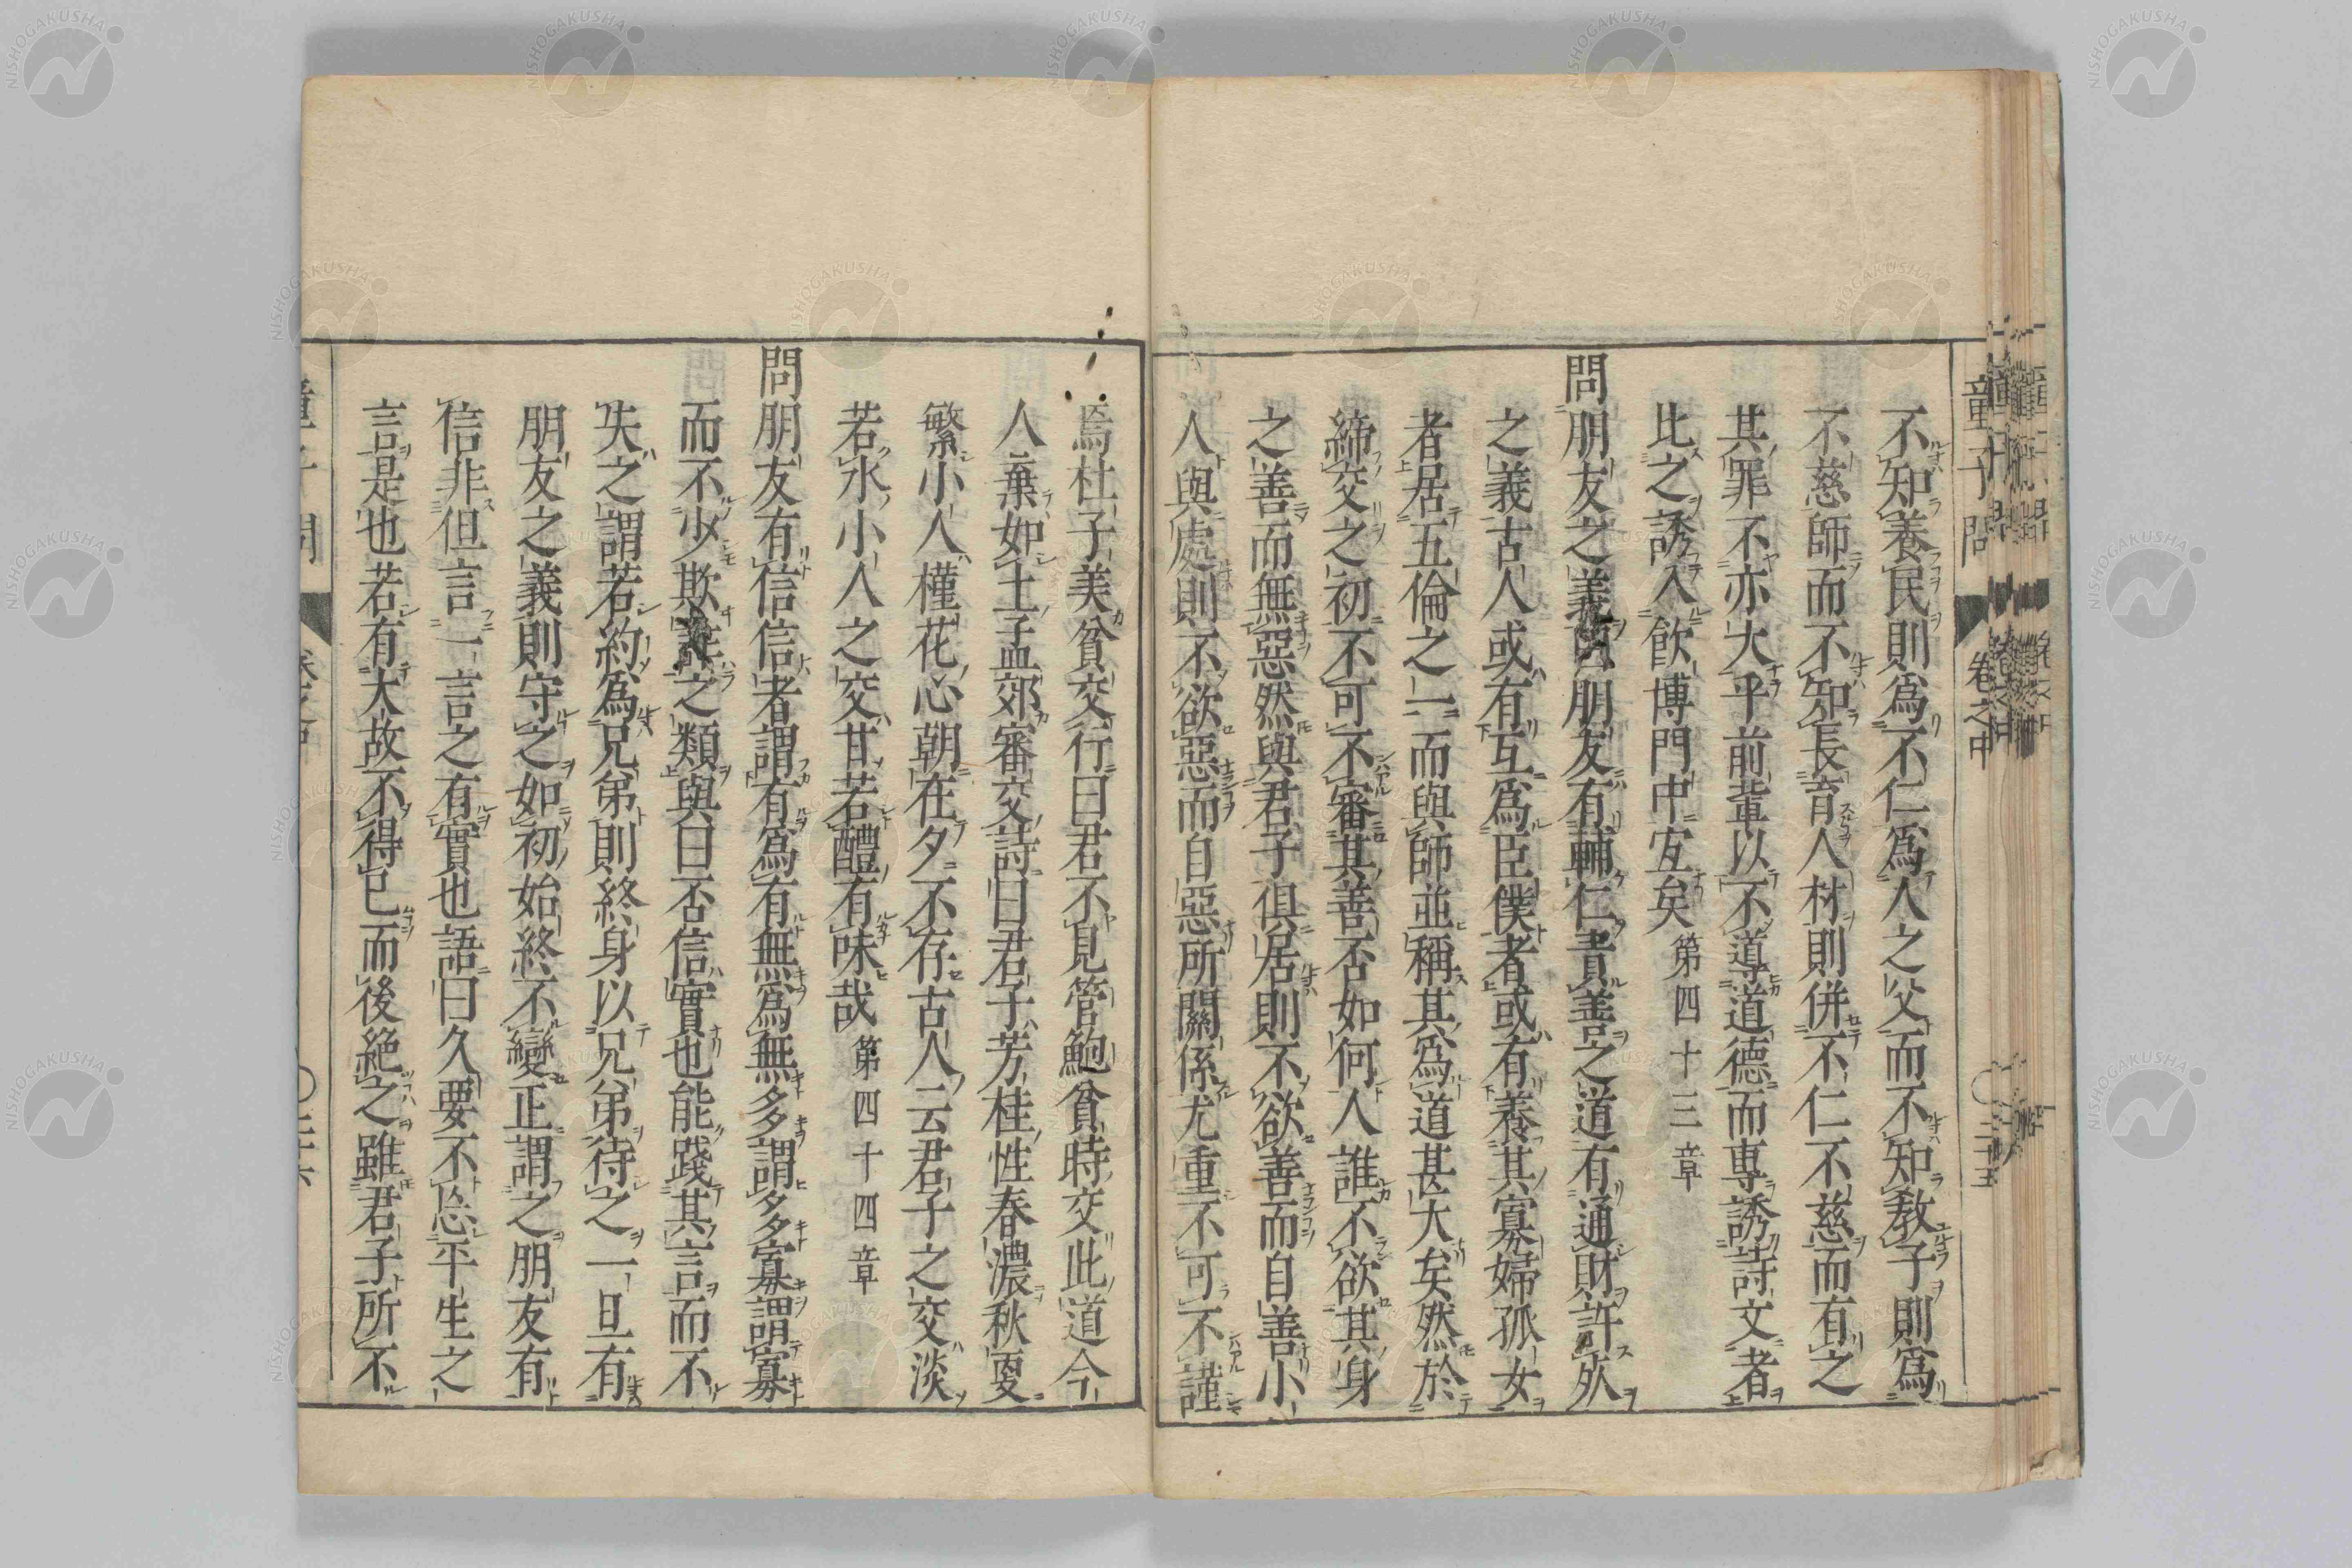 童子問 卷之中 〇三十五
不知養民則爲不仁爲人之父而不知教子則爲
不慈師而不知長育人材則併不仁不慈而有之
其罪不亦大乎前輩以不導道德而專誘詩文者
比之誘人飮博門中宐矣 第四十三章
問朋友之義 朋友有輔仁責善之道有通財許
之義古人或有互爲臣僕者或有養其寡婦孤女
者居五倫之一而與師並稱其爲道甚大矣然於
締交之初不可不審其善否如何人誰不欲其身
之善而無惡然與君子俱居則不欲善而自善小
人與處則不欲惡而自惡所關係尤重不可不謹
焉杜子美貧交行曰君不見管鮑貧時交此道今
人棄如土孟郊審交詩曰君子芳桂性春濃秋更
繁小人槿花心朝在夕不存古人云君子之交淡
若水小人之交甘若醴有味哉 第四十四章
問朋友有信信者謂有爲有無爲無多謂多寡謂寡
而不少欺詐之類與曰否信實也能踐其言而不
失之謂若約爲兄弟則終身以兄弟待之一旦有
朋友之義則守之如初始終不變正謂之朋友有
信非但言一言之有實也語曰久要不忘平生之
言是也若有大故不得已而後絶之雖君子所不